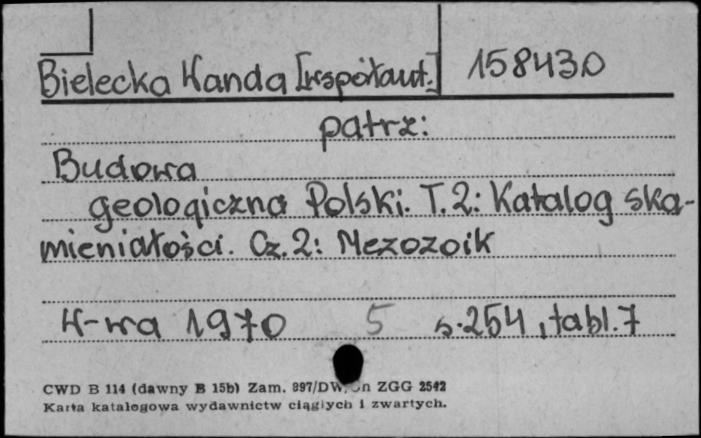 Bielecka Wanda [współaut.] 158430
patrz:
Budowa
geologiczna Polski. T.2: Katalog ska-
mieniałości. Cz.2: Mezozoik
W-wa 1970 5 s.254, tabl.7
CWD B 114 (dawny B 15b) Zam. 997/DW/ ZGG 2542
Karta katalogowa wydawnictw ciągłych i zwartych.